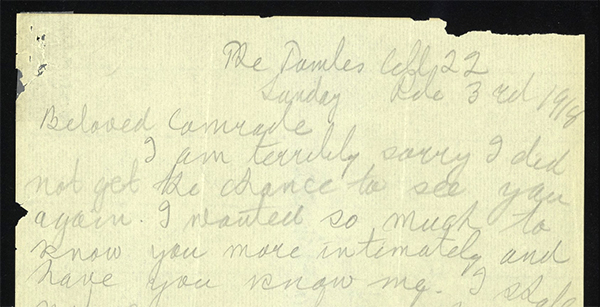 The Tombes Cell 22
Sunday 3rd 1918
Beloved Comrade
I am terribly sorry I did
not get the chance to see you
again. I wanted so much to
know you more intimately and
have you know me. I